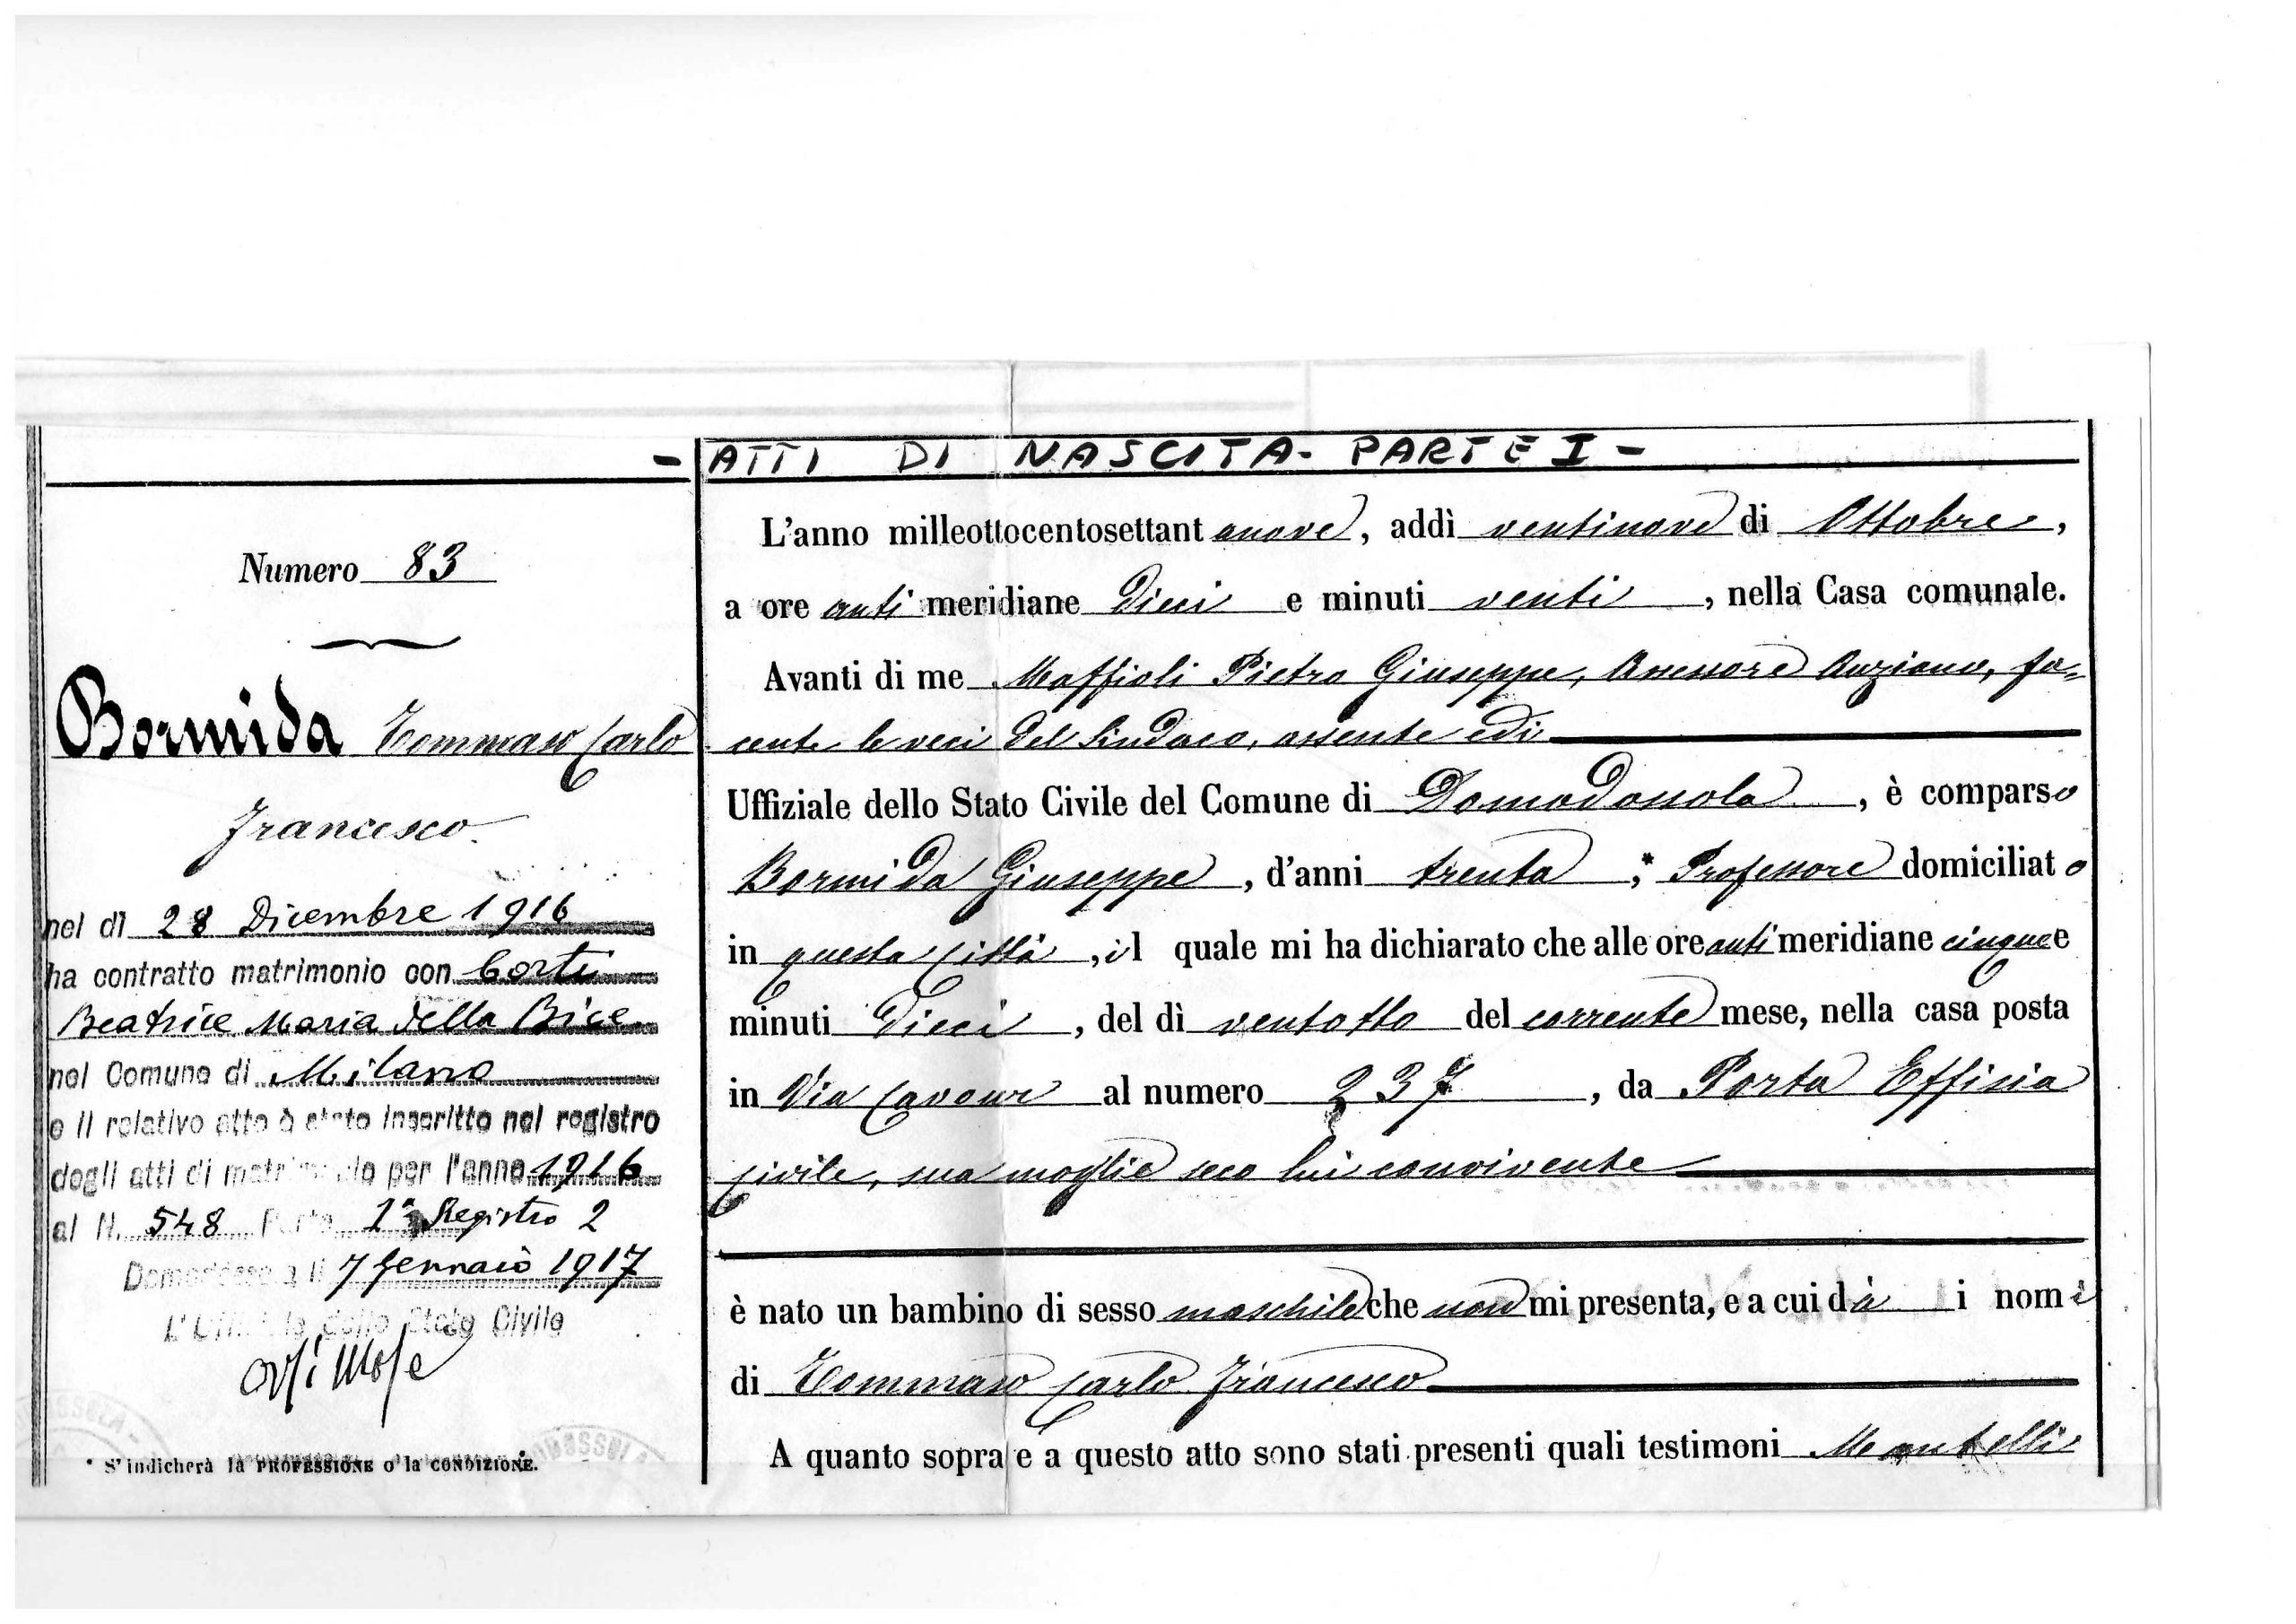 - ATTI DI NASCITA - PARTE I -
Numero 83
Bormida Tommaso Carlo
Francesco
nel dì 28 Dicembre 1916
ha contratto matrimonio con Corti
Beatrice Maria della Bice
nel Comune di Milano
e il relativo atto è stato inscritto nel registro
degli atti di matrimonio per l'anno 1916
al N. 548 Parte 1a Registro 2
Domodossola li 7 Gennaio 1917
L'Ufficiale dello Stato Civile
* S'indicherà la PROFESSIONE o la CONDIZIONE.
L'anno milleottocentosettantanove, addì ventinove di Ottobre,
a ore antimeridiane dieci e minuti venti, nella Casa comunale.
Avanti di me Maffioli Pietro Giuseppe, Assessore Anziano, fa-
cente le veci del Sindaco, assente ed
Uffiziale dello Stato Civile del Comune di Domodossola, è comparso
Bormida Giuseppe, d'anni trenta, * Professore domiciliato
in questa Città, il quale mi ha dichiarato che alle ore antimeridiane cinque e
minuti dieci, del dì ventotto del corrente mese, nella casa posta
in Via Cavour al numero 237, da Porta Effisia
civile, sua moglie seco lui convivente
è nato un bambino di sesso maschile che non mi presenta, e a cui dà i nomi
di Tommaso Carlo Francesco
A quanto sopra e a questo atto sono stati presenti quali testimoni Mantelli